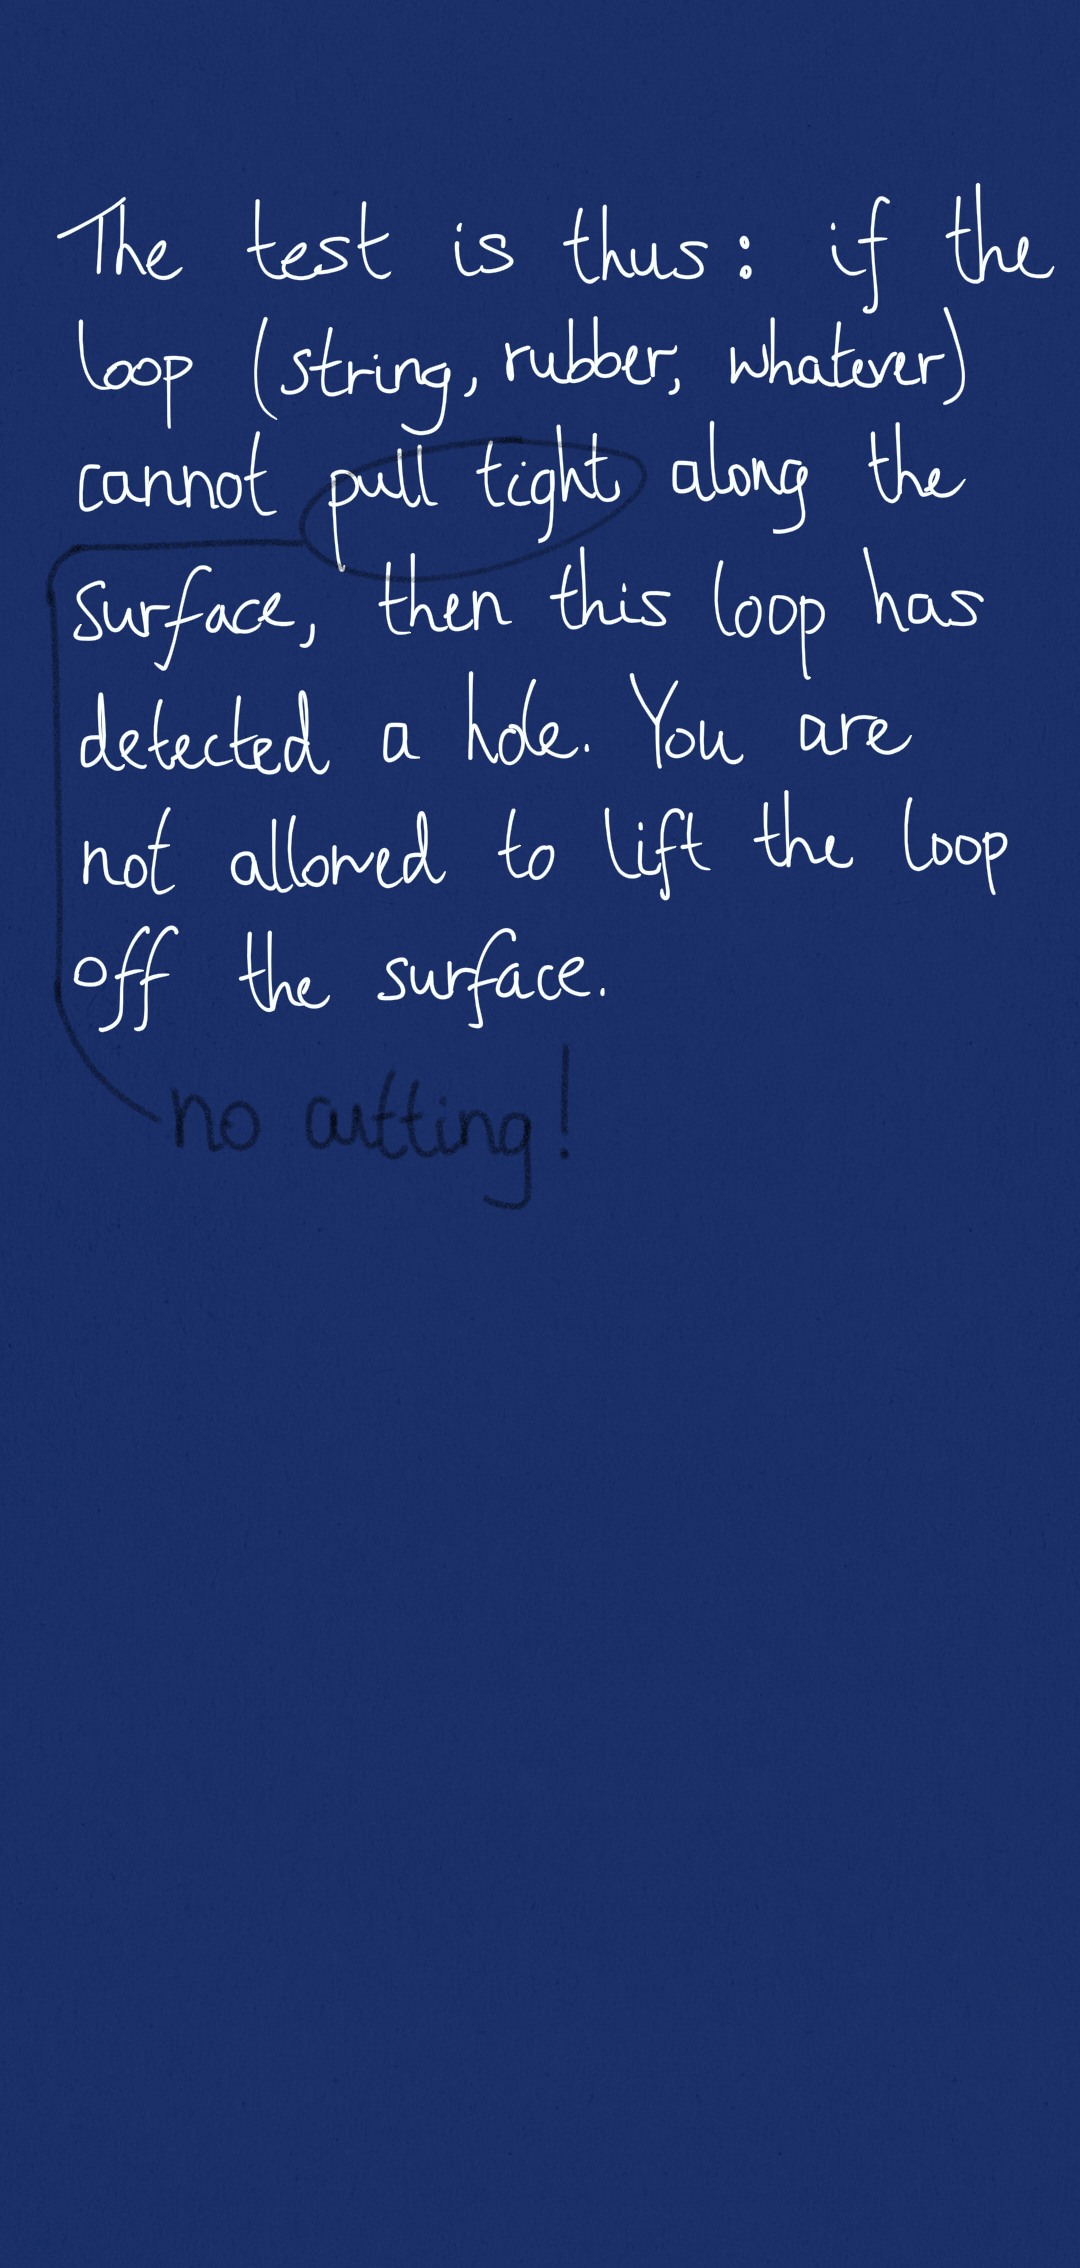 The test is thus: if the
loop (string, rubber, whatever)
cannot pull tight along the
surface, then this loop has
detected a hole. You are
not allowed to lift the loop
off the surface.
no cutting!